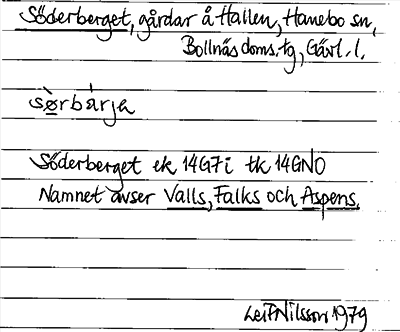 Söderberget, gårdar å Hallen, Hanebo sn,
Bollnäs doms.tg, Gävl. l.
sø̀rbárja
Söderberget ek 14G7i tk 14GNO
Namnet avser Valls, Falks och Aspens.
Leif Nilsson 1979